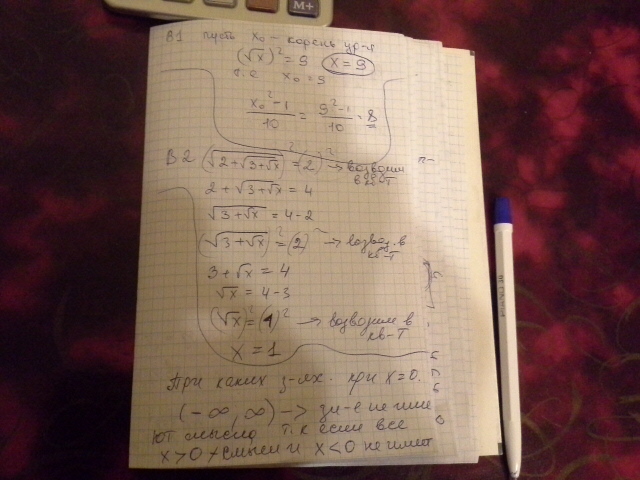 M+
В1 пусть x₀ - корень ур-я
(√x)² = 9 x = 9
т.е x₀ = 9
x₀² - 1 / 10 = 9² - 1 / 10 = 8
В2 (√2+√3+√x)² = (2)² → возводим
в кв-т
2 + √3+√x = 4
√3+√x = 4-2
(√3+√x)² = (2)² → возвод. в
кв-т
3 + √x = 4
√x = 4-3
(√x)² = (1)² → возводим в
кв-т
x = 1
При каких з-ях. при x=0.
(-∞, ∞) → зн-е не име
ют смысла т.к если все
x > 0 смысл и x < 0 не имет